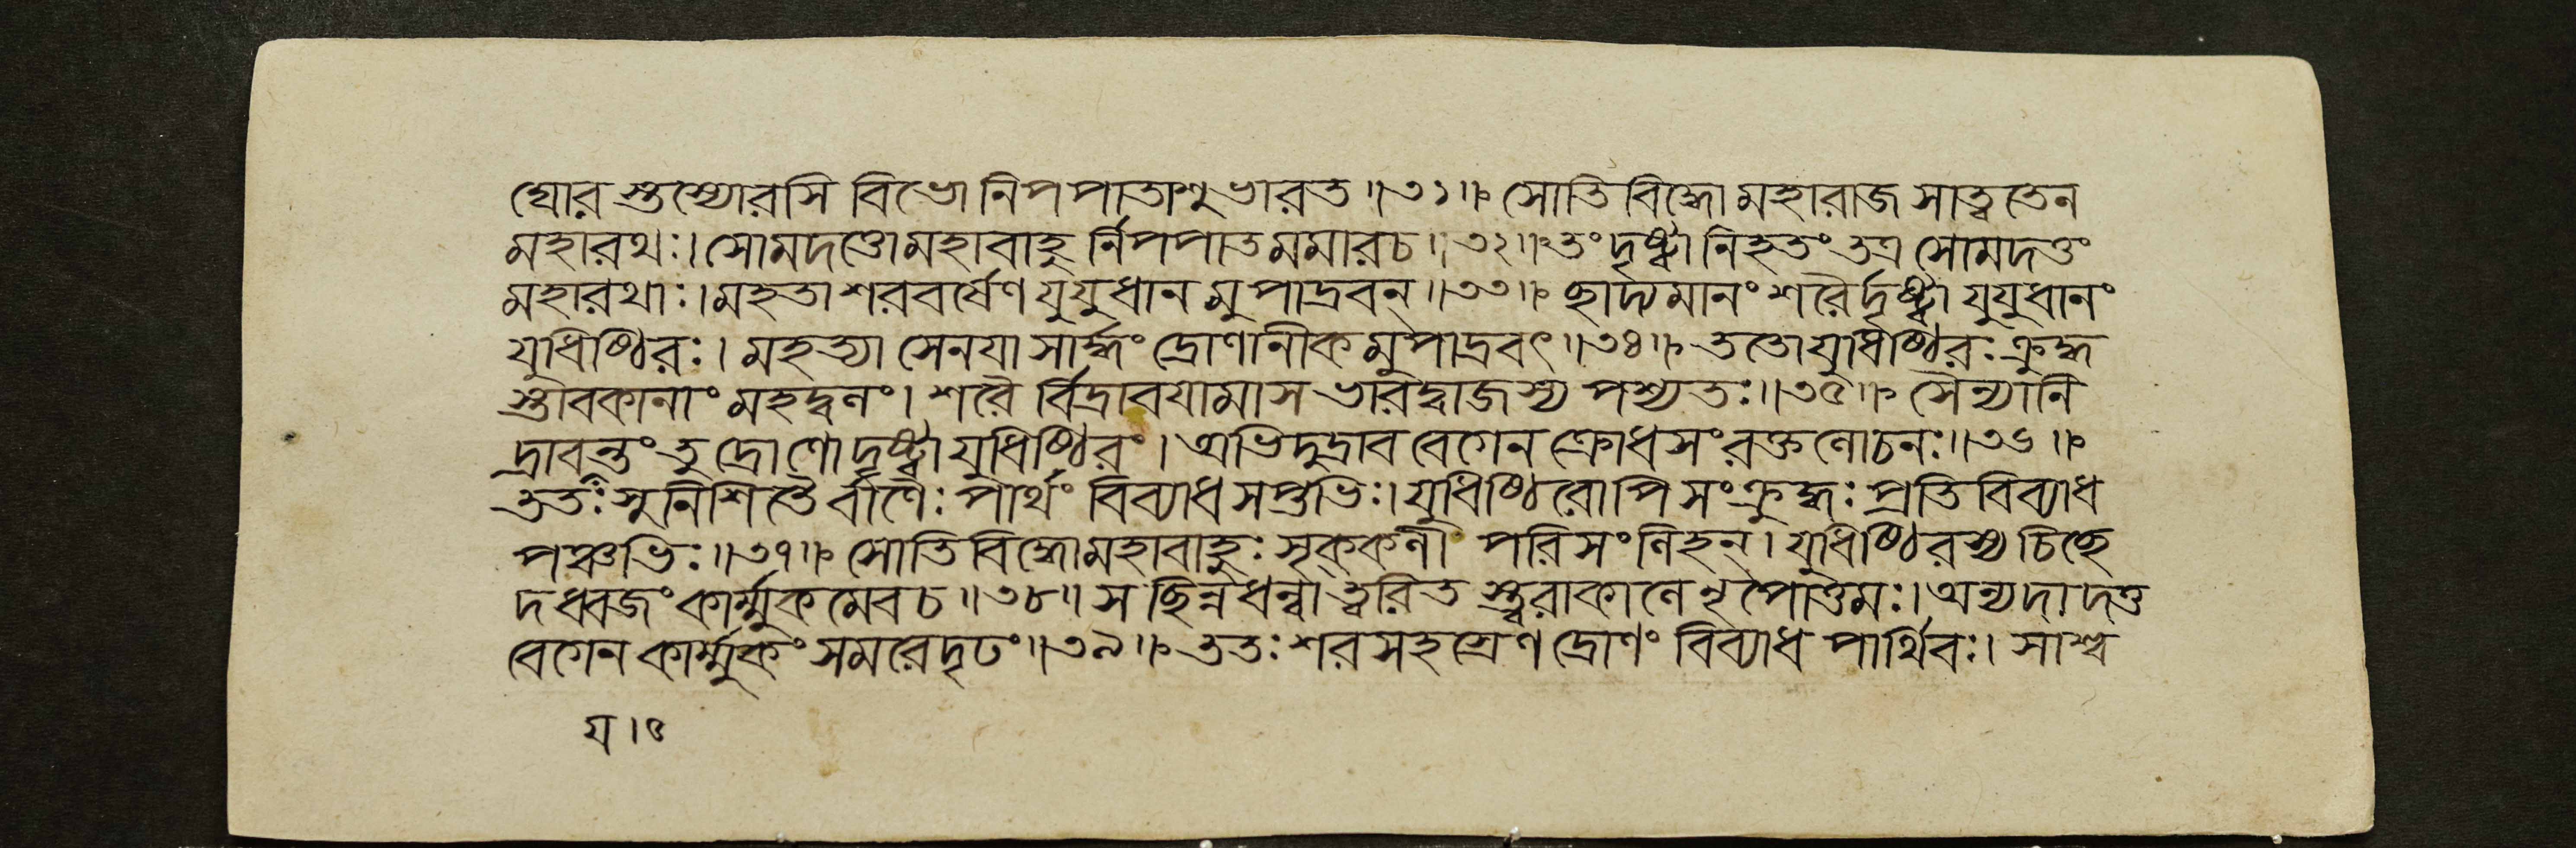 ঘোর স্তস্যোরসি বিভো নিপপাতাশু ভারত ॥৩১॥ সোতি বিদ্ধো মহারাজ সাত্বতেন
মহারথঃ। সোমদত্তো মহাবাহু র্নিপপাত মমার চ ॥৩২॥ তং দৃষ্ট্বা নিহতং তত্র সোমদত্তং
মহারথাঃ। মহতা শরবর্ষেণ যুযুধান মুপাদ্রবন্ ॥৩৩॥ ছাদ্যমানং শরৈর্দৃষ্ট্বা যুযুধানং
যুধিষ্ঠিরঃ। মহত্যা সেনয়া সার্দ্ধং দ্রোণানীক মুপাদ্রবৎ ॥৩৪॥ ততো যুধিষ্ঠিরঃ ক্রুদ্ধ
স্তাবকানাং মহদ্বলং। শরৈ র্বিদ্রাবয়ামাস ভারদ্বাজস্য পশ্যতঃ ॥৩৫॥ সৈন্যানি
দ্রাবন্তং তু দ্রোণো দৃষ্ট্বা যুধিষ্ঠিরং। অভিদুদ্রাব বেগেন ক্রোধসংরক্তলোচনঃ ॥৩৬॥
ততঃ সুনিশিতৈ র্বাণৈঃ পার্থং বিব্যাধ সপ্তভিঃ। যুধিষ্ঠিরোপি সংক্রুদ্ধঃ প্রতিবিব্যাধ
পঞ্চভিঃ ॥৩৭॥ সোতি বিদ্ধো মহাবাহুঃ সৃক্কণী পরিসংলিহন্। যুধিষ্ঠিরস্য চিচ্ছে
দ ধ্বজং কার্ম্মুকমেব চ ॥৩৮॥ স ছিন্নধন্বা ত্বরিত স্ত্বরাকালে নৃপোত্তমঃ। অন্যদাদত্ত
বেগেন কার্ম্মুকং সমরে দৃঢং ॥৩৯॥ ততঃ শরসহস্রেণ দ্রোণং বিব্যাধ পার্থিবঃ। সাশ্ব